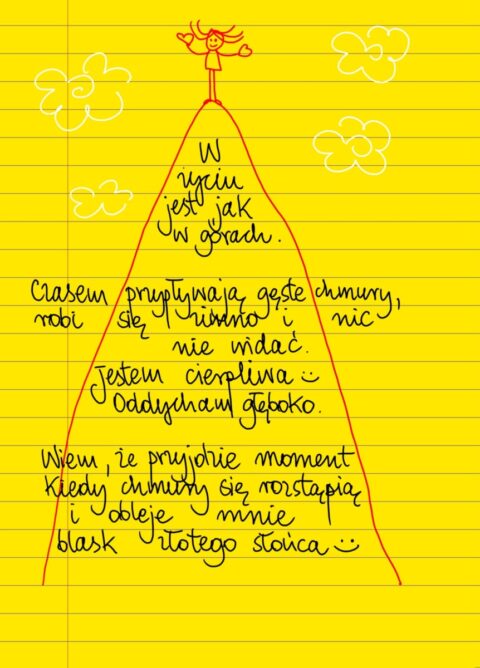 W
życiu
jest jak
w górach.
Czasem przypływają gęste chmury,
robi się zimno i nic
nie widać.
Jestem cierpliwa :)
Oddycham głęboko.
Wiem, że przyjdzie moment
kiedy chmury się rozstąpią
i obleje mnie
blask złotego słońca :)